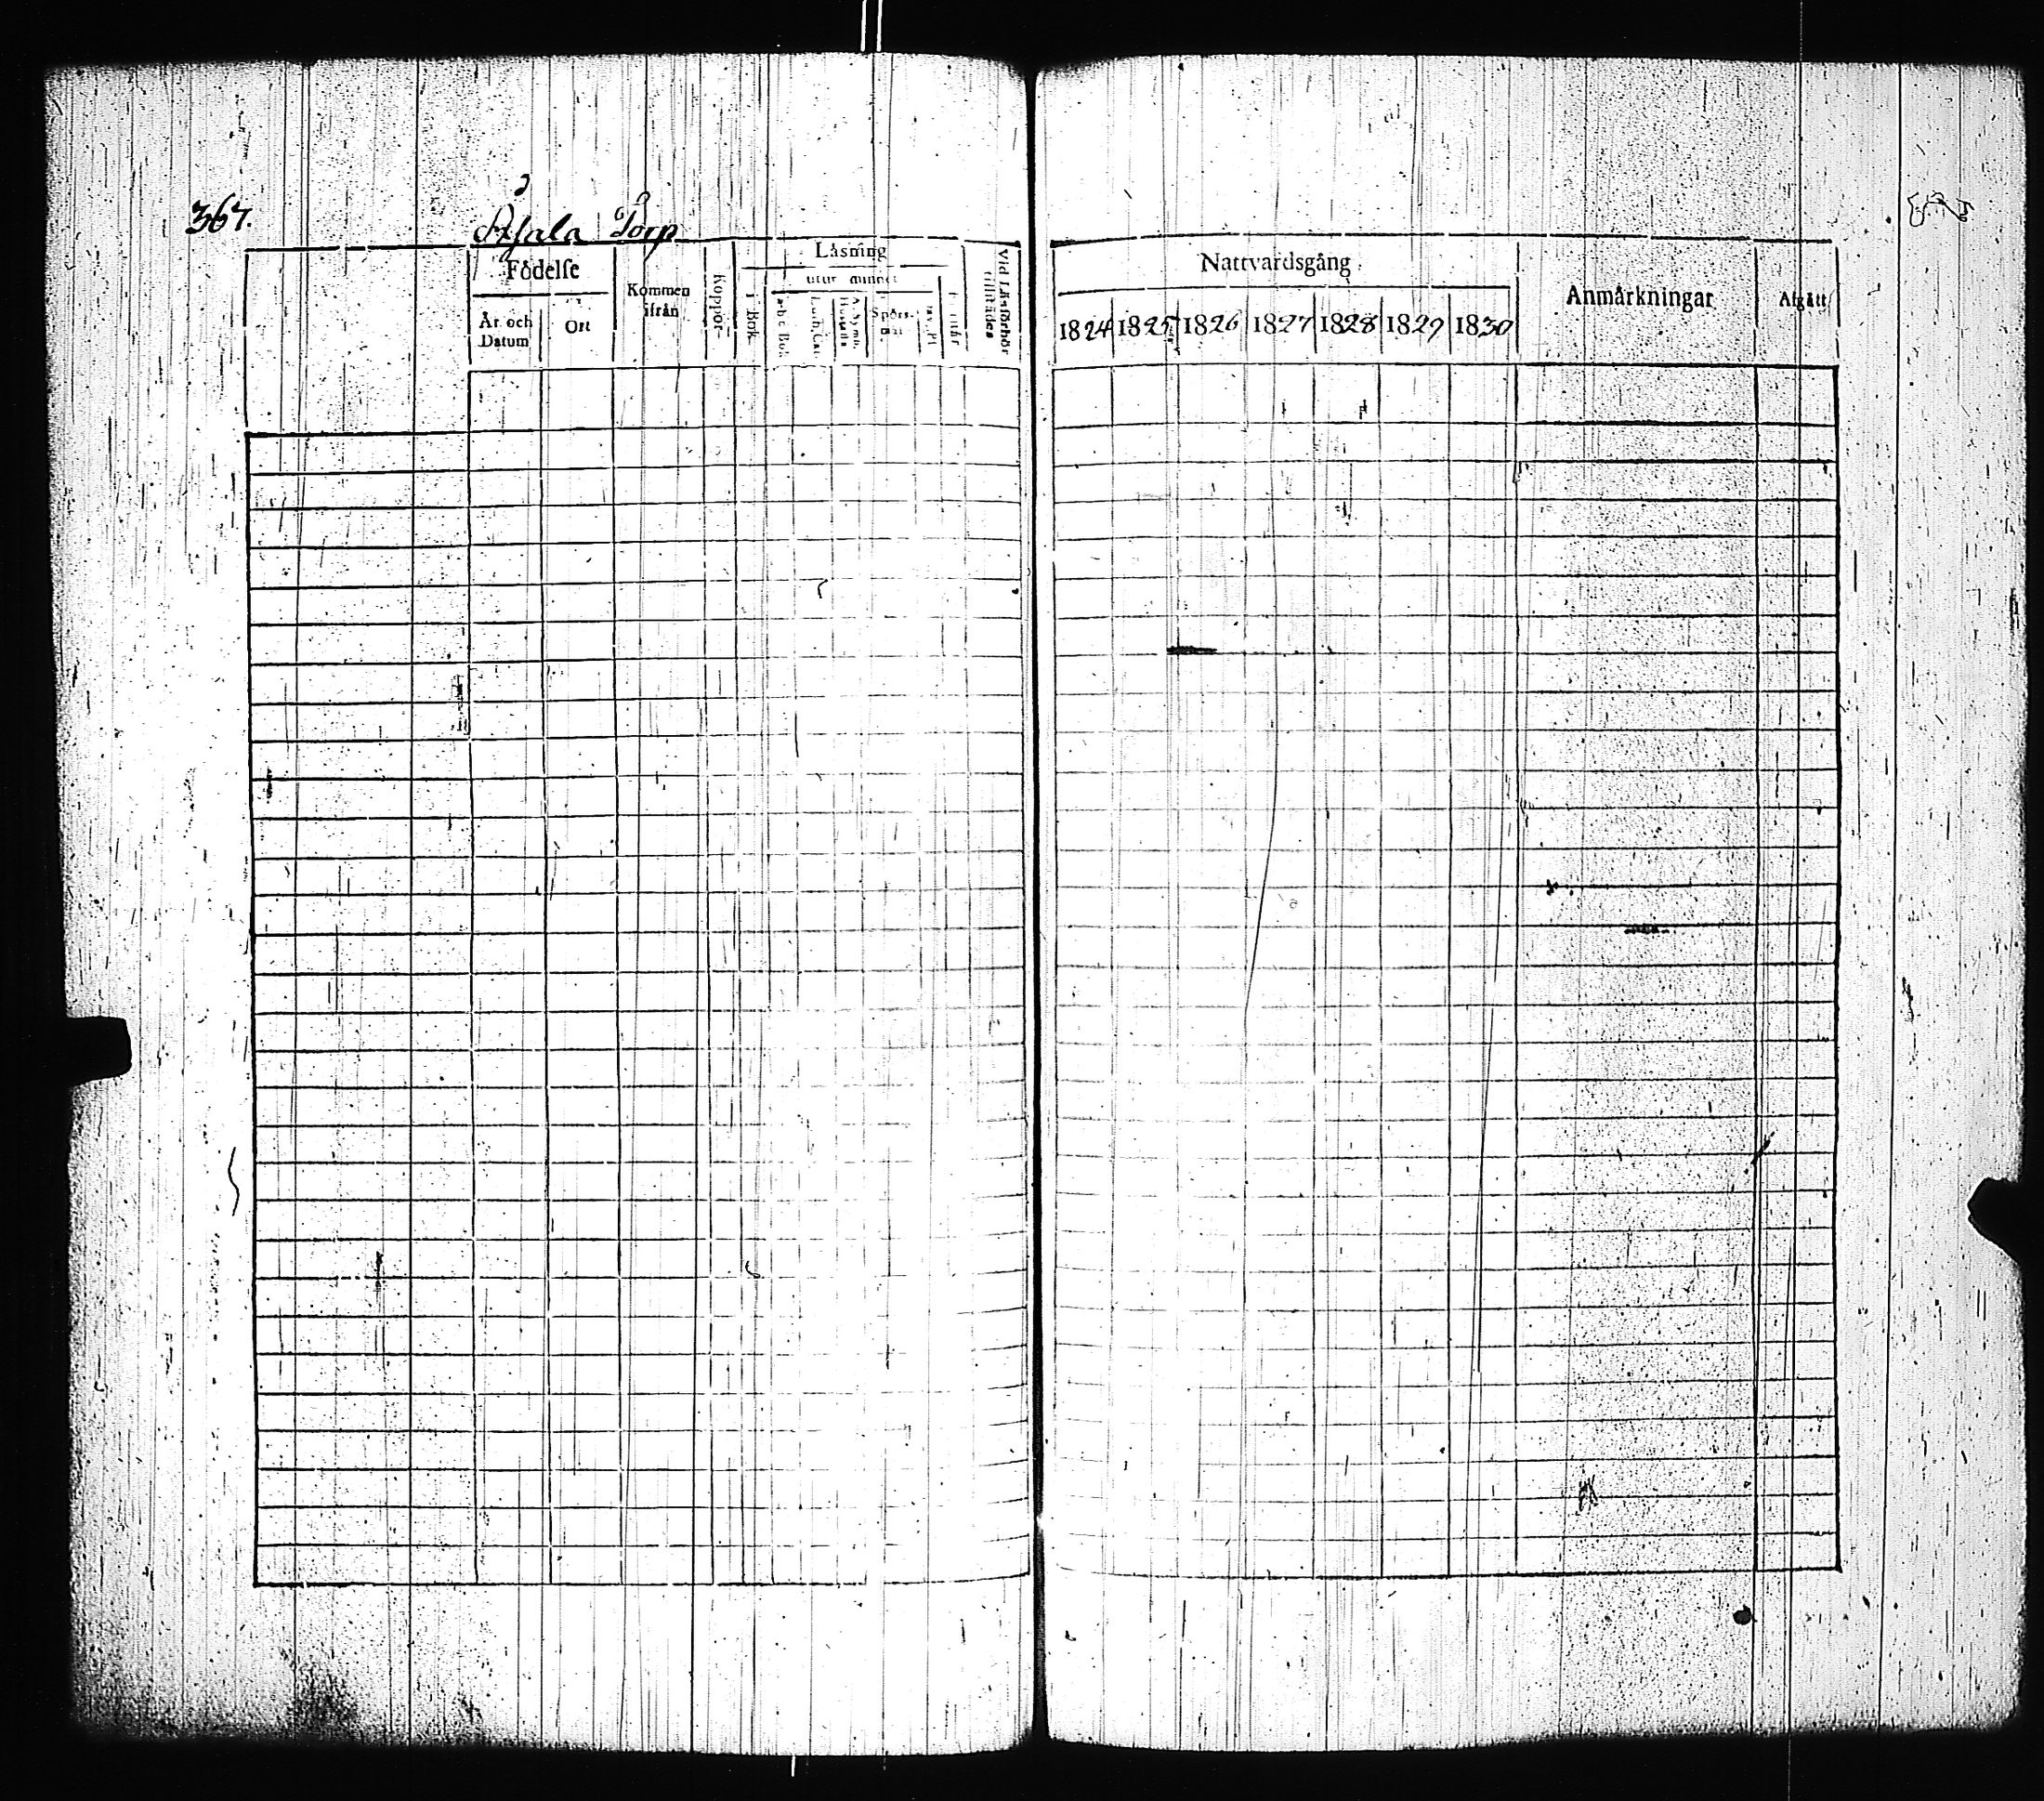 367.
Åsala Torp
Födelse
År och Datum
Ort
Kommen ifrån
Koppor
Läsning
utur minnet
i Bok
a b c Bok
Luth. Cat.
Hustafla
Spörs-mål
Dav. Ps
Förstår
Vid Läsförhör tillstädes
Nattvardsgång
1824 1825 1826 1827 1828 1829 1830
Anmärkningar
Afgått